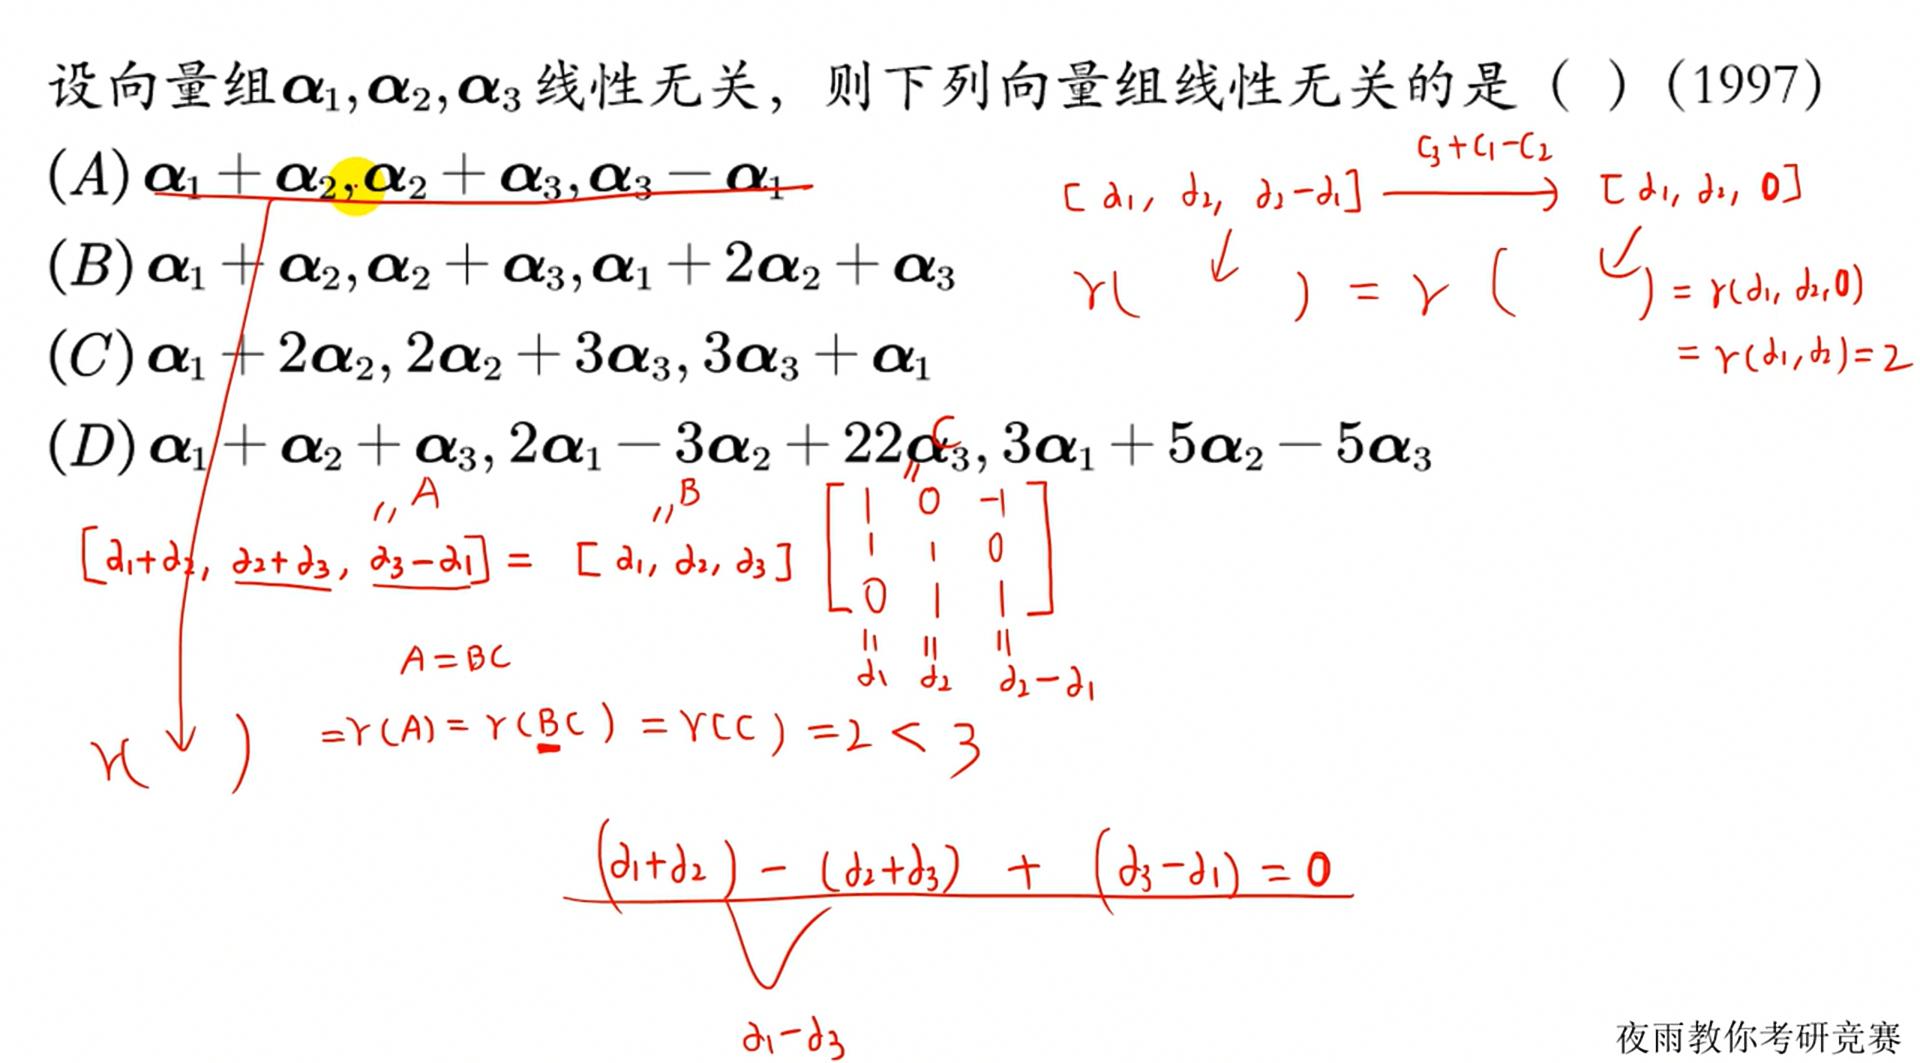 设向量组α₁,α₂,α₃线性无关，则下列向量组线性无关的是（ ）(1997)
(A) α₁+α₂,α₂+α₃,α₃−α₁
(B) α₁+α₂,α₂+α₃,α₁+2α₂+α₃
(C) α₁+2α₂,2α₂+3α₃,3α₃+α₁
(D) α₁+α₂+α₃,2α₁−3α₂+22α₃,3α₁+5α₂−5α₃
C₃+C₁−C₂
[α₁, α₂, α₂−α₁] → [α₁, α₂, 0]
r( ) = r( ) = r(α₁, α₂, 0)
= r(α₁, α₂) = 2
A B C
[α₁+α₂, α₂+α₃, α₃−α₁] = [α₁, α₂, α₃] [1 0 −1
1 1 0
0 1 1]
α₁ α₂ α₂−α₁
A=BC
r( ) =r(A)=r(BC)=r(C)=2<3
(α₁+α₂)−(α₂+α₃)+(α₃−α₁)=0
α₁−α₃
夜雨教你考研竞赛